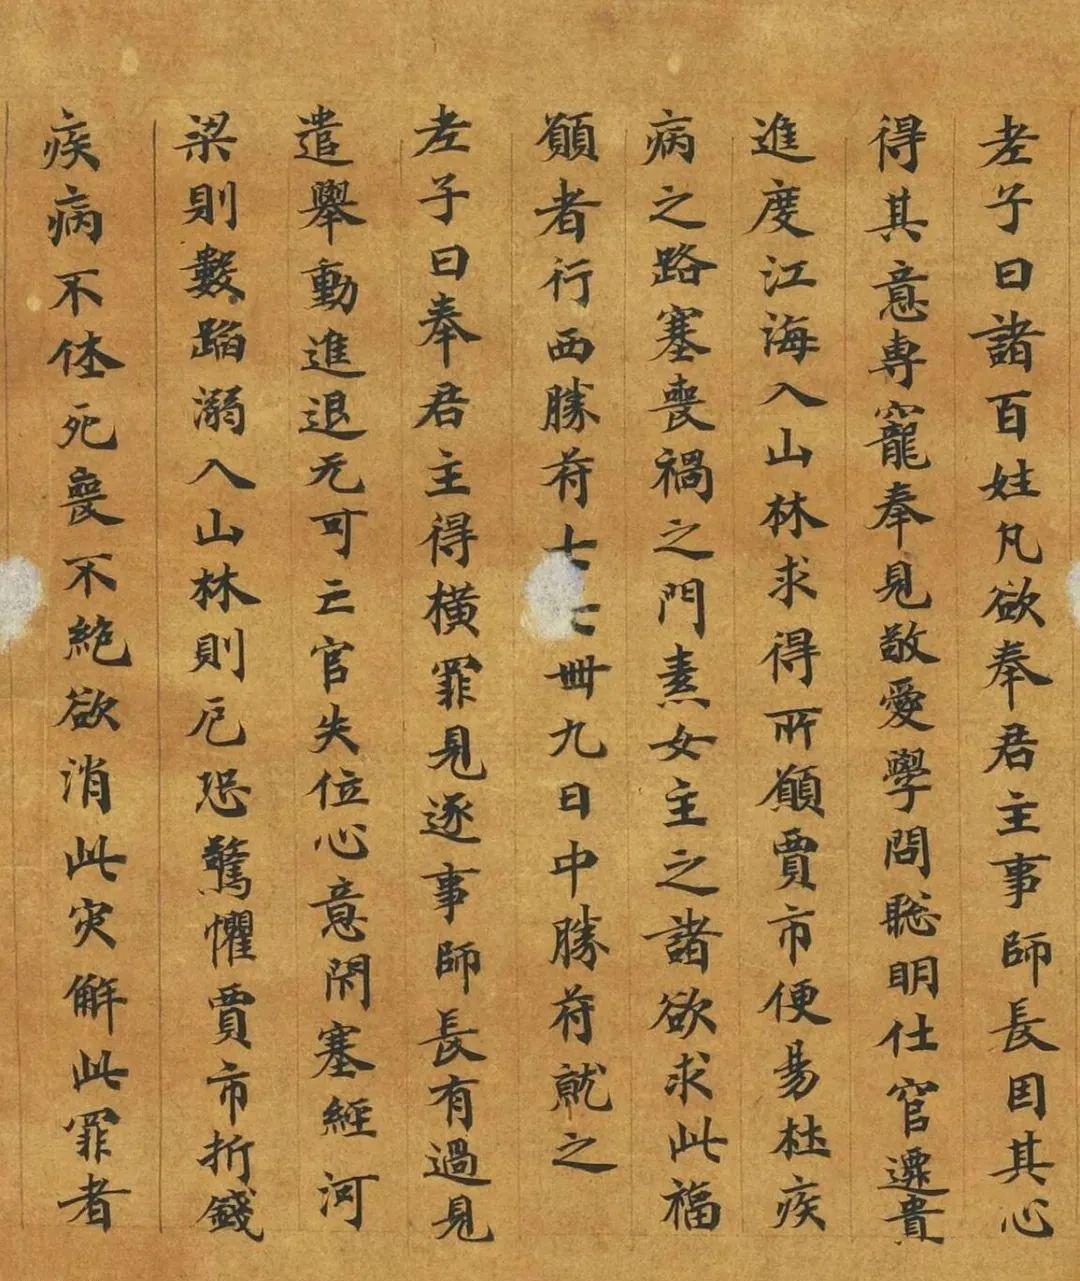 老子曰諸百姓凡欲奉君主事師長因其心
得其意專寵奉見敬愛學問聡明仕官遷貴
進度江海入山林求得所願賈市便易杜疾
病之路塞喪禍之門素女主之諸欲求此福
願者行西勝苻七七卌九日中勝苻就之
老子曰奉君主得橫罪見逐事師長有過見
遣舉動進退无可亡官失位心意閇塞經河
梁則數蹈溺入山林則厄恐驚懼賈市折錢
疾病不休死喪不絶欲消此灾解此罪者